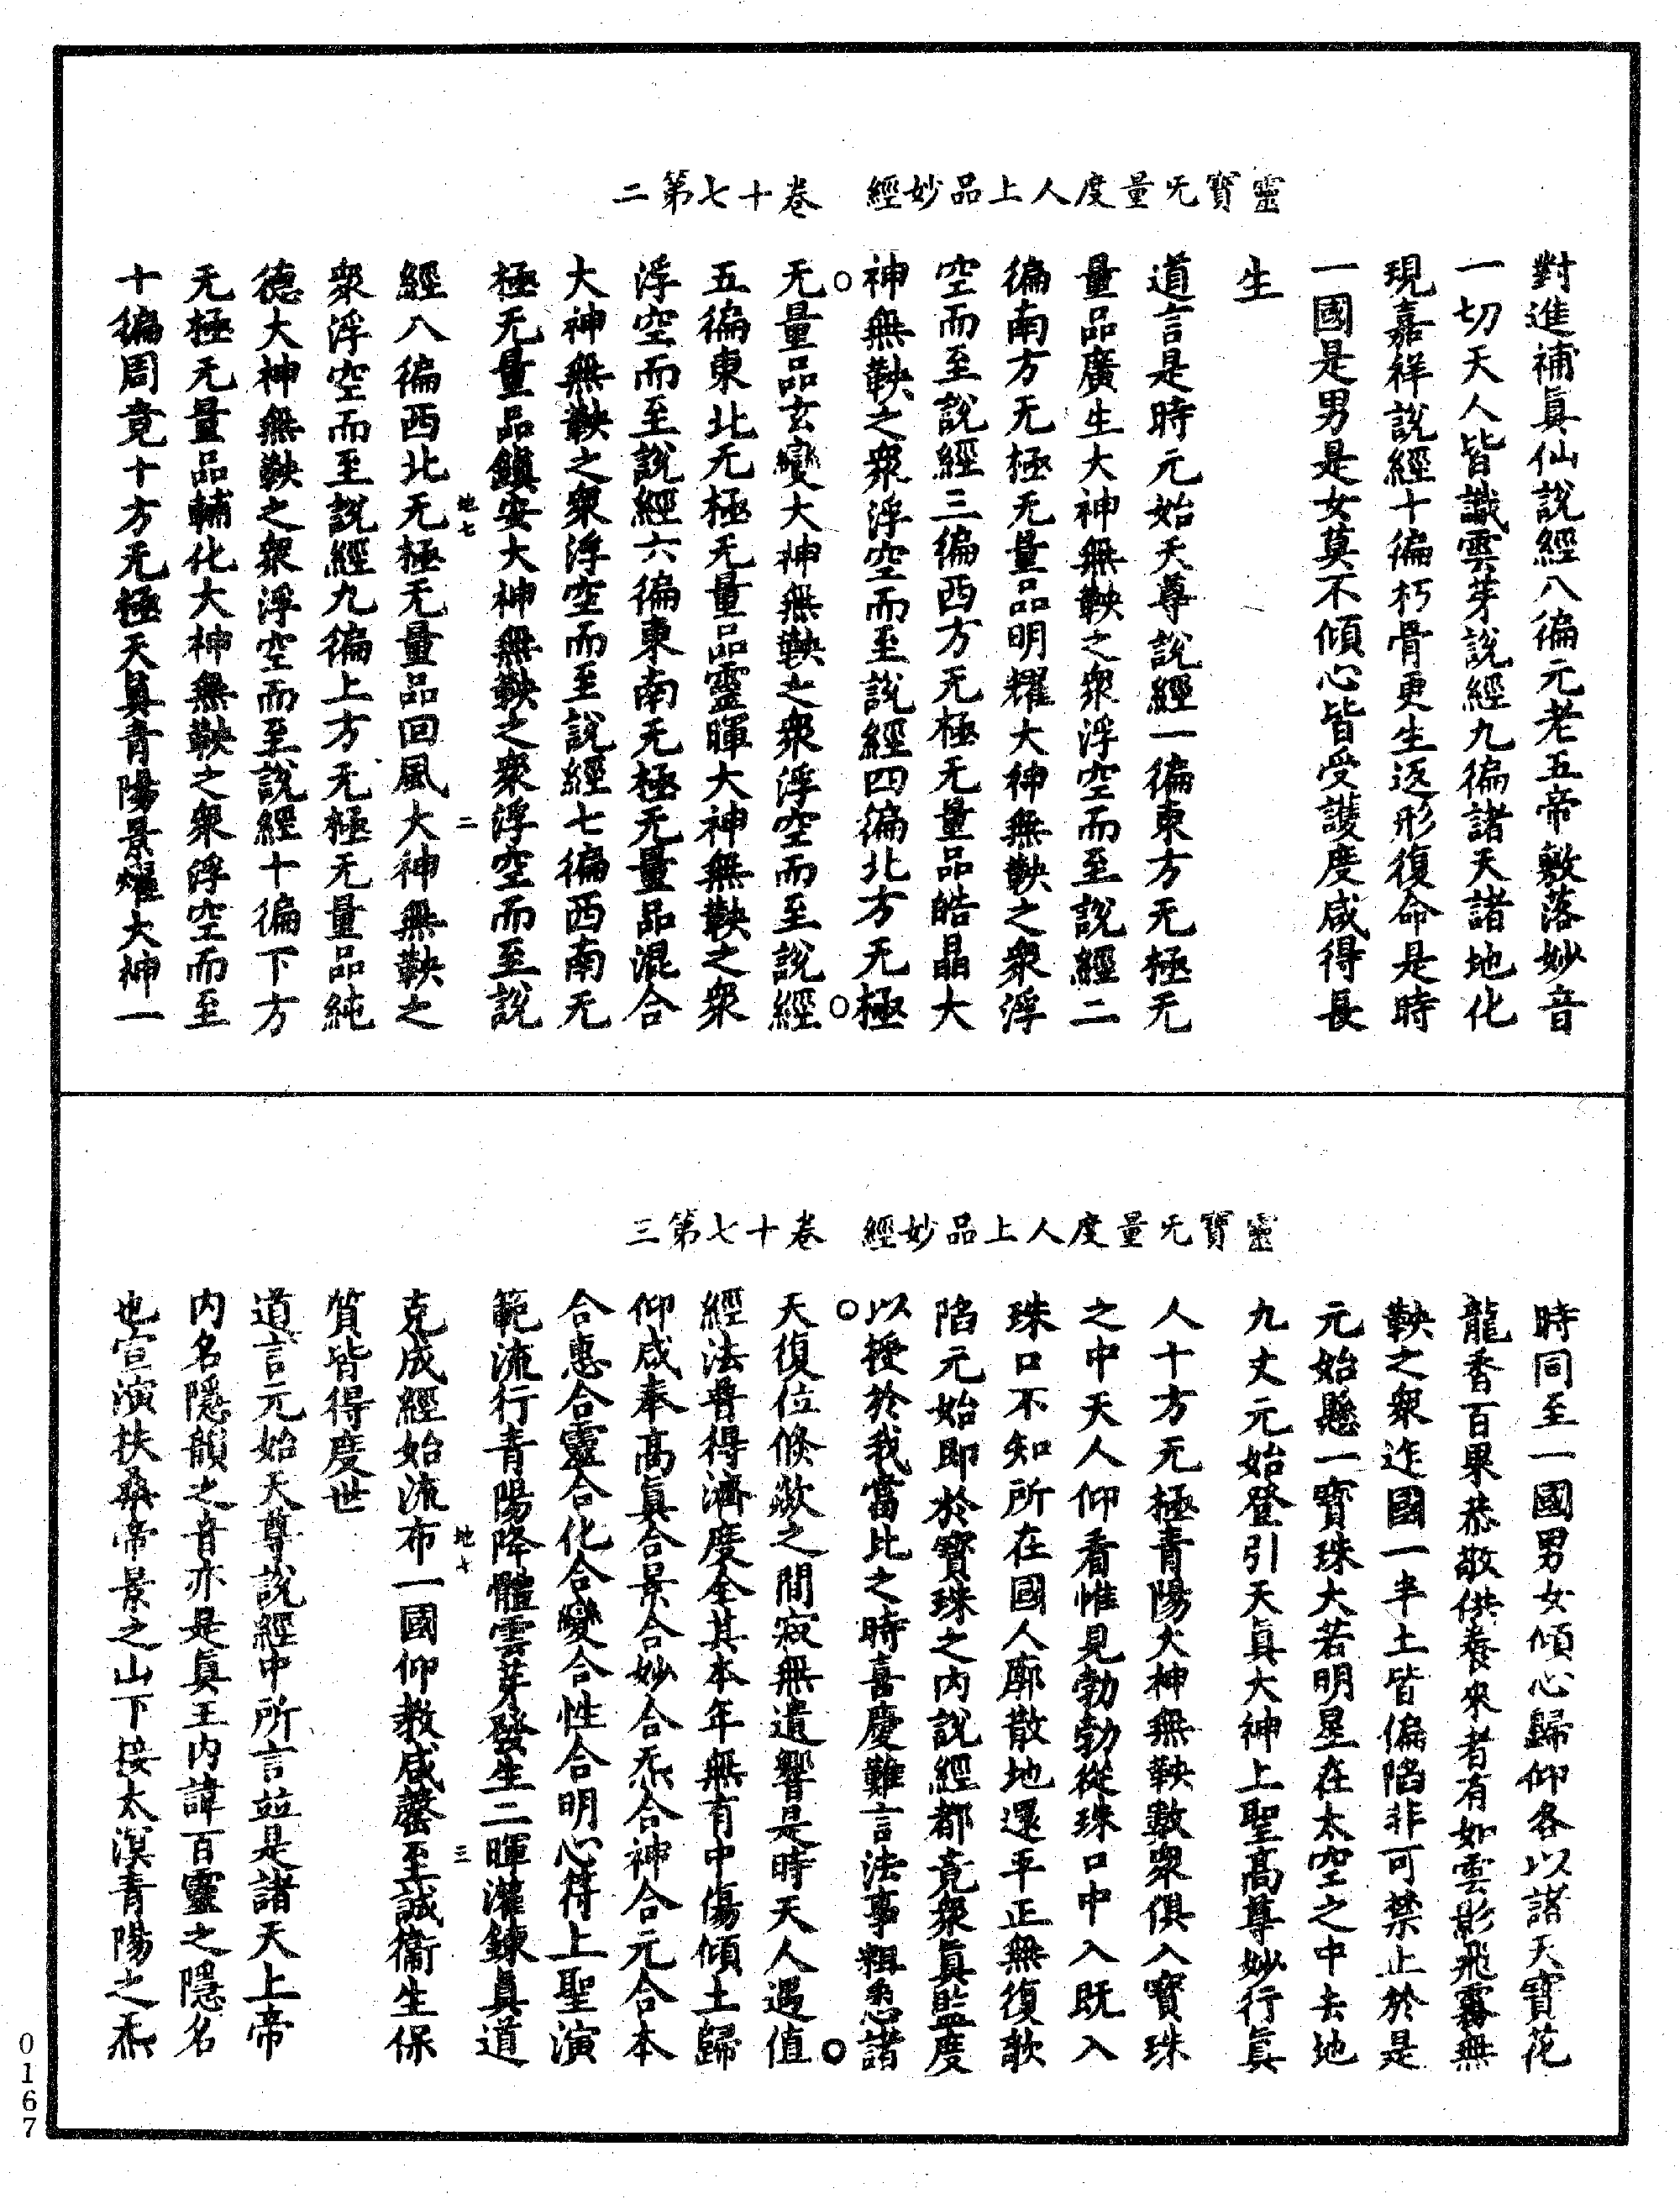 靈寶无量度人上品妙經　卷十七第二
對進補眞仙說經八徧元老五帝敷落妙音
一切天人皆識雲芽說經九徧諸天諸地化
現嘉祥說經十徧朽骨更生返形復命是時
一國是男是女莫不傾心皆受護度咸得長
生
道言是時元始天尊說經一徧東方无極无
量品廣生大神無鞅之衆浮空而至說經二
徧南方无極无量品明耀大神無鞅之衆浮
空而至說經三徧西方无極无量品皓晶大
神無鞅之衆浮空而至說經四徧北方无極
无量品玄變大神無鞅之衆浮空而至說經
五徧東北无極无量品靈暉大神無鞅之衆
浮空而至說經六徧東南无極无量品混合
大神無鞅之衆浮空而至說經七徧西南无
極无量品鎭安大神無鞅之衆浮空而至說
地七　二
經八徧西北无極无量品回風大神無鞅之
衆浮空而至說經九徧上方无極无量品純
德大神無鞅之衆浮空而至說經十徧下方
无極无量品輔化大神無鞅之衆浮空而至
十徧周竟十方无極天眞青陽景耀大神一
靈寶无量度人上品妙經　卷十七第三
時同至一國男女傾心歸仰各以諸天寶花
龍香百果恭敬供養來者有如雲影飛霧無
鞅之衆迮國一半土皆偏陷非可禁止於是
元始懸一寶珠大若明星在太空之中去地
九丈元始登引天眞大神上聖高尊妙行眞
人十方无極青陽大神無鞅數衆俱入寶珠
之中天人仰看惟見勃勃從珠口中入既入
珠口不知所在國人廓散地還平正無復欹
陷元始即於寶珠之內說經都竟衆眞監度
以授於我當此之時喜慶難言法事粗悉諸
天復位倐歘之間寂無遺響是時天人遇值
經法普得濟度全其本年無有中傷傾土歸
仰咸奉高眞合景合妙合炁合神合元合本
合惠合靈合化合變合性合明心符上聖演
範流行青陽降體雲芽發生二暉灌鍊眞道
地七　三
克成經始流布一國仰教咸罄至誠衞生保
質皆得度世
道言元始天尊說經中所言並是諸天上帝
內名隱韻之音亦是眞王內諱百靈之隱名
也宣演扶桑帝景之山下接太溟青陽之炁
0167